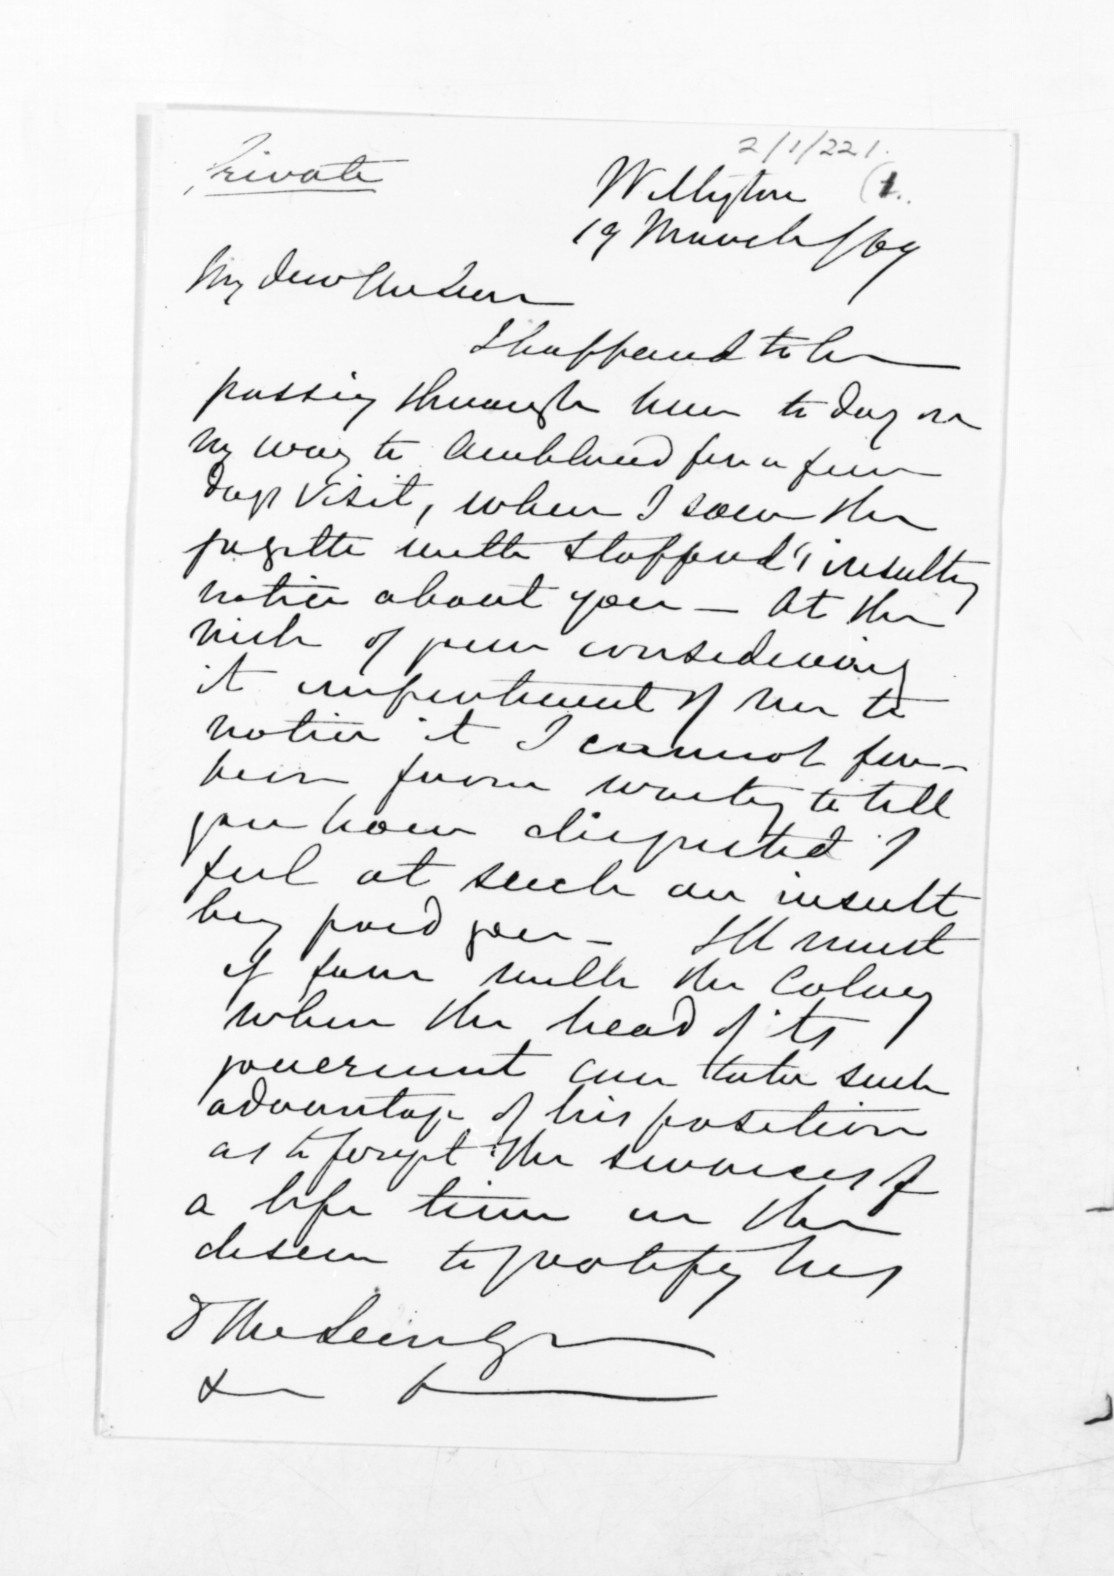 2/1/221.
Private
Wellington (1.
19 March/69
My dear McLean
I happened to be
passing through here to day on
my way to Auckland for a few
days visit, when I saw the
gazette with Stafford's insulting
notice about you — At the
risk of your considering
it impertinent of me to
notice it I cannot for-
bear from writing to tell
you how disgusted I
feel at such an insult
being paid you — Ill must
it fare with the Colony
when the head of its
government can take such
advantage of his position
as to forget the services of
a life time in the
desire to gratify his
D McLean Esqr